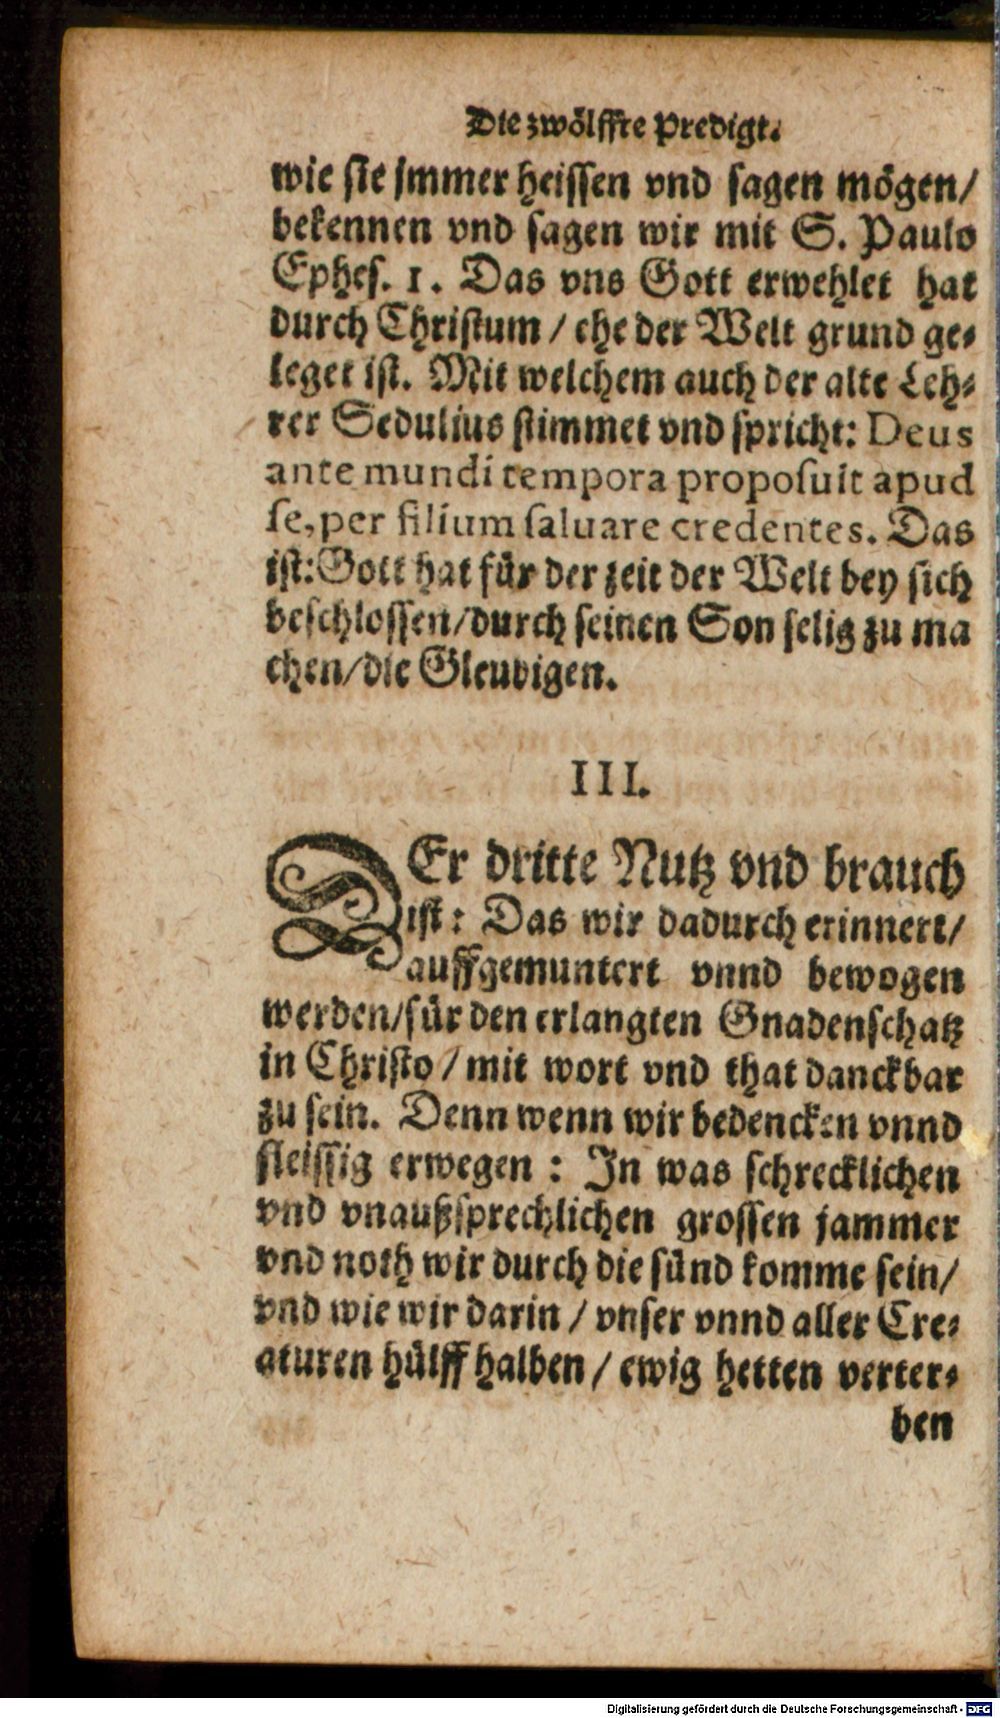 Die zwölffte Predigt.
wie sie jmmer heissen vnd sagen mögen/
bekennen vnd sagen wir mit S. Paulo
Ephes. 1. Das vns Gott erwehlet hat
durch Christum / ehe der Welt grund ge-
leget ist. Mit welchem auch der alte Leh-
rer Sedulius stimmet vnd spricht: Deus
ante mundi tempora proposuit apud
se, per filium saluare credentes. Das
ist: Gott hat für der zeit der Welt bey sich
beschlossen/durch seinen Son selig zu ma
chen/die Gleubigen.
III.
DEr dritte Nutz vnd brauch
ist: Das wir dadurch erinnert/
auffgemuntert vnnd bewogen
werden/für den erlangten Gnadenschatz
in Christo / mit wort vnd that danckbar
zu sein. Denn wenn wir bedencken vnnd
fleissig erwegen : In was schrecklichen
vnd vnaußsprechlichen grossen jammer
vnd noth wir durch die sünd komme sein/
vnd wie wir darin / vnser vnnd aller Cre-
aturen hülff halben / ewig hetten verter-
ben
Digitalisierung gefördert durch die Deutsche Forschungsgemeinschaft - DFG